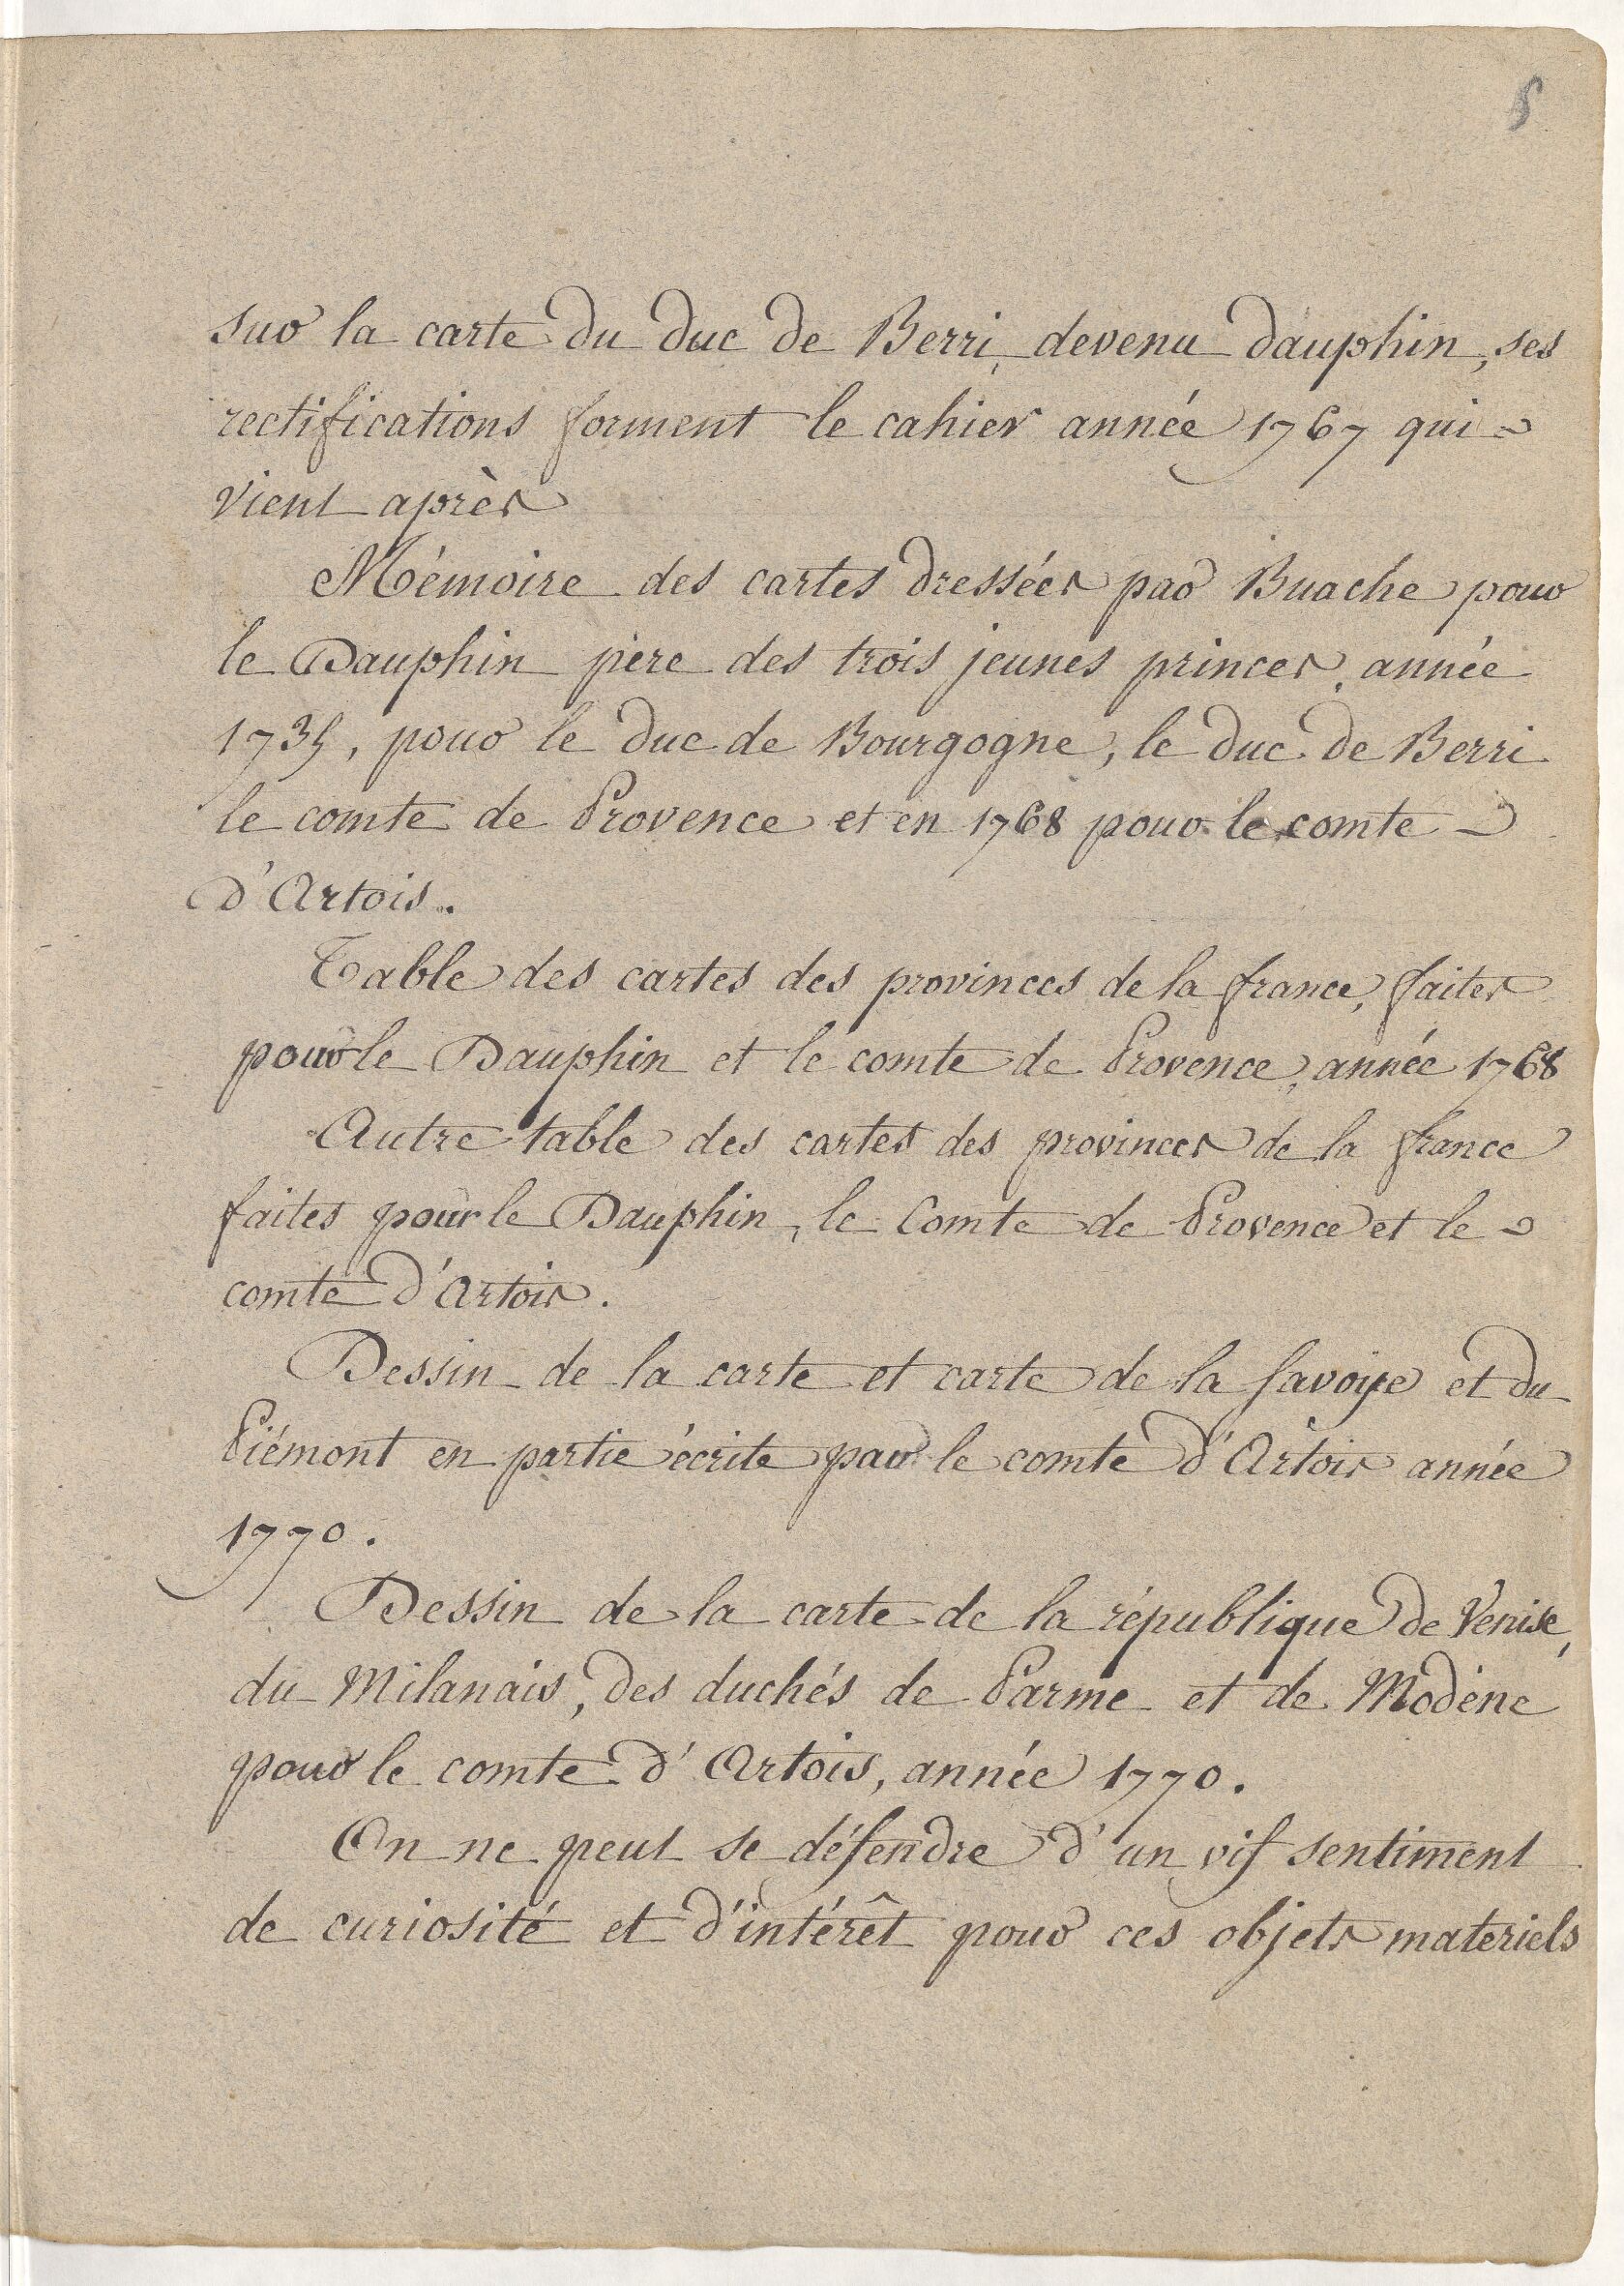 5
sur la carte du duc de Berri, devenu dauphin, ses
rectifications forment le cahier année 1767 qui
vient après
Mémoire des cartes dressées par Buache pour
le Dauphin père des trois jeunes princes, année
1735, pour le duc de Bourgogne, le duc de Berri
le comte de Provence et en 1768 pour le comte
d'Artois.
Table des cartes des provinces de la france, faites
pour le Dauphin et le comte de Provence, année 1768
Autre table des cartes des provinces de la france
faites pour le Dauphin, le Comte de Provence et le
comte d'Artois.
Dessin de la carte et carte de la Savoye et du
Piémont en partie écrite par le comte d'Artois année
1770.
Dessin de la carte de la république de Venise,
du Milanais, des duchés de Parme et de Modène
pour le comte d'Artois, année 1770.
On ne peut se défendre d'un vif sentiment
de curiosité et d'intérêt pour ces objets materiels